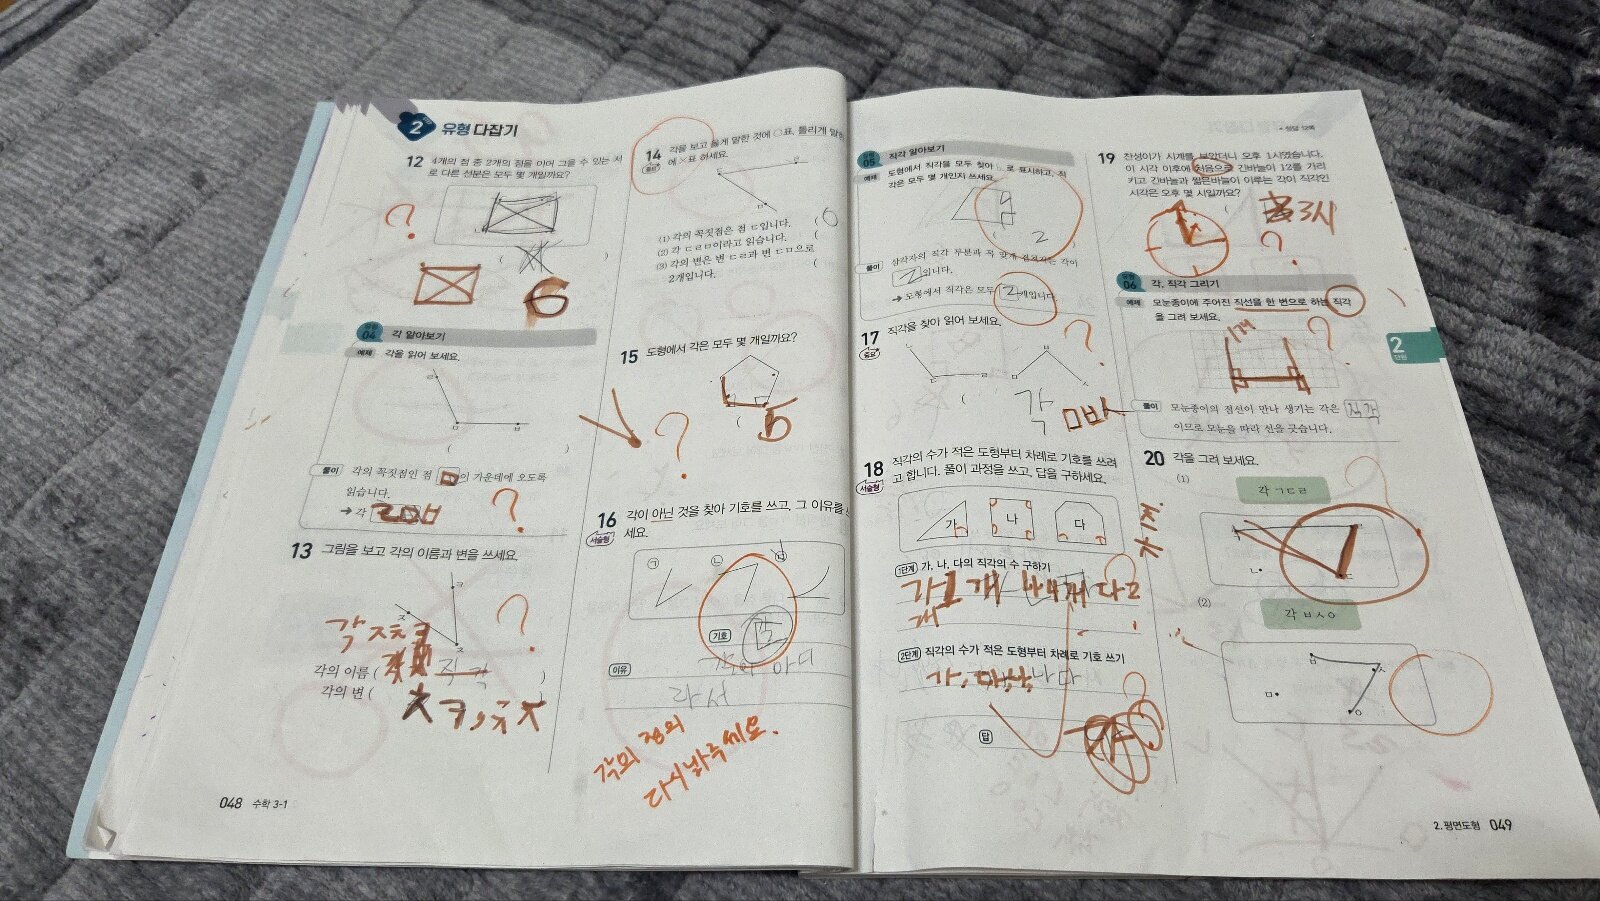 2 유형 다잡기
12 4개의 점 중 2개의 점을 이어 그을 수 있는 서
로 다른 선분은 모두 몇 개일까요?
?
( )
6
유형 04 각 알아보기
예제 각을 읽어 보세요.
ㄹ
ㅁ ㅂ
( )
풀이 각의 꼭짓점인 점 ㅁ이 가운데에 오도록
읽습니다.
➔ 각 ㄹㅁㅂ
?
13 그림을 보고 각의 이름과 변을 쓰세요.
ㅋ
ㅈ
?
각 ㅈㅊㅋ
각의 이름 ( 직각 )
각의 변 ( ㅊㅋ, ㅊㅈ )
048 수학 3-1
14 각을 보고 옳게 말한 것에 ○표, 틀리게 말한
중요 에 ×표 하세요.
ㄷ ㄹ
ㅁ
(1) 각의 꼭짓점은 점 ㄷ입니다. (
(2) 각 ㄷㄹㅁ이라고 읽습니다. (
(3) 각의 변은 변 ㄷㄹ과 변 ㄷㅁ으로 (
2개입니다.
15 도형에서 각은 모두 몇 개일까요?
?
( 5
16 각이 아닌 것을 찾아 기호를 쓰고, 그 이유를
서술형 세요.
㉠ ㉡ ㉢
기호
이유
각의 정의
다시봐주세요.
유형 05 직각 알아보기
예제 도형에서 직각을 모두 찾아 ㄴ로 표시하고, 직
각은 모두 몇 개인지 쓰세요.
2
풀이 삼각자의 직각 부분과 꼭 맞게 겹쳐지는 각이
2입니다.
➔ 도형에서 직각은 모두 2개입니다.
17 직각을 찾아 읽어 보세요.
중요
?
( 각
18 직각의 수가 적은 도형부터 차례로 기호를 쓰려
서술형 고 합니다. 풀이 과정을 쓰고, 답을 구하세요.
가 나 다
1단계 가, 나, 다의 직각의 수 구하기
가1개 나4개 다2
개
2단계 직각의 수가 적은 도형부터 차례로 기호 쓰기
답
정답 12쪽
19 찬성이가 시계를 보았더니 오후 1시였습니다.
이 시각 이후에 처음으로 긴바늘이 12를 가리
키고 긴바늘과 짧은바늘이 이루는 각이 직각인
시각은 오후 몇 시일까요?
( 3시
?
유형 06 각, 직각 그리기
예제 모눈종이에 주어진 직선을 한 변으로 하는 직각
을 그려 보세요.
?
풀이 모눈종이의 점선이 만나 생기는 각은 직각
이므로 모눈을 따라 선을 긋습니다.
2
단원
20 각을 그려 보세요.
(1) 각 ㄱㄷㄹ
ㄴ ㄷ
(2) 각 ㅂㅅㅇ
ㅅ
ㅁ
ㅇ
2. 평면도형 049